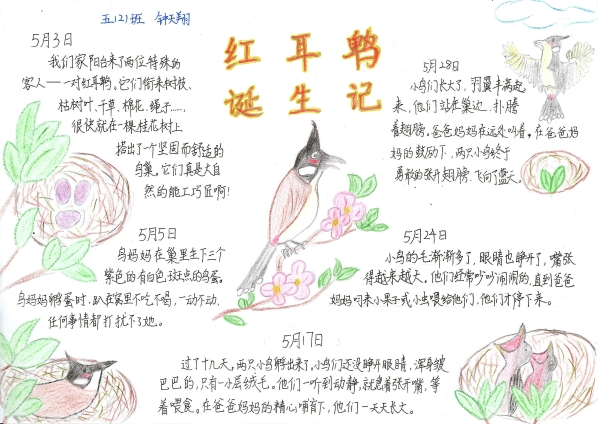 五(2)班 钟天翔
红耳鹎
诞生记
5月3日
我们家阳台来了两位特殊的
客人——一对红耳鹎,它们衔来树枝、
枯树叶、干草、棉花、绳子……,
很快就在一棵桂花树上
搭出了个坚固而舒适的
鸟巢。它们真是大自
然的能工巧匠啊!
5月5日
鸟妈妈在巢里生下三个
紫色的有白色斑点的鸟蛋。
鸟妈妈孵蛋时,趴在窝里不吃不喝,一动不动,
任何事情都打扰不了她。
5月17日
过了十几天。两只小鸟孵出来了。小鸟们还没睁开眼睛,浑身皱
巴巴的,只有一小层绒毛。他们一听到动静,就急着张开嘴,等
着喂食。在爸爸妈妈的精心哺育下,他们一天天长大。
5月24日
小鸟的毛渐渐多了,眼睛也睁开了,嘴张
得越来越大。他们经常吵吵闹闹的,直到爸爸
妈妈叼来小果子或小虫喂给他们,他们才停下来。
5月28日
小鸟们长大了,羽翼丰满起
来,他们站在巢边,扑腾
着翅膀。爸爸妈妈在远处叫着。在爸爸妈
妈的鼓励下,两只小鸟终于
勇敢的张开翅膀,飞向了蓝天。